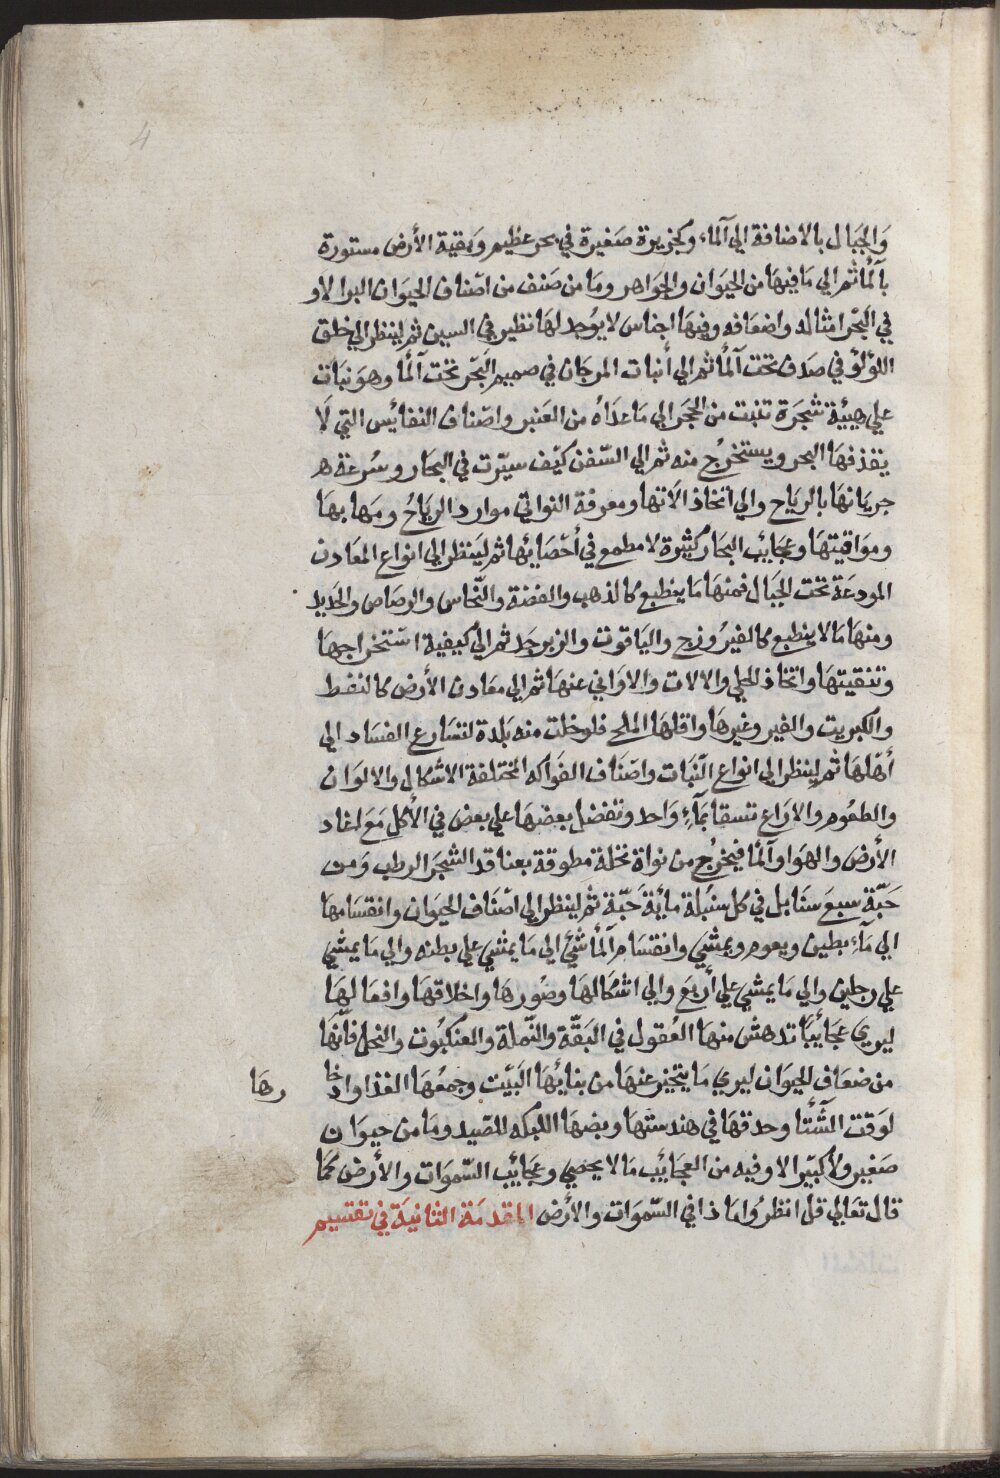 4
والجبال بالاضافة الي آلماء وكجزيرة صغيرة في بحر عظيم وبقية الأرض مستورة
بآلمأ ثم الي ما فيها من الحيوان والجواهر وما من صنف من اصناف الحيوان البر الا و
في البحر امثاله واضعافه وفيها اجناس لا يوجد لها نظير في السين ثم لينظر الي خلق
اللؤلؤ في صدف تحت آلمأ ثم الي أنبات المرجان في صميم البحر تحت آلمأ وهو نبات
علي هيئة شجرة تنبت من الحجر الي ما عداه من العنبر واصناف النفائس التي لا
يقذفها البحر ويستخرج منه ثم الي السفن كيف سيرت في البحار وسرعة
جريانها بالرياح والي اتخاذ الاتها ومعرفة النواتي موارد الرياح ومهابها
ومواقيتها وعجائب البحار كثيرة لا مطمع في أحصائها ثم لينظر الي انواع المعادن
المودعة تحت الجبال فمنها ما ينطبع كالذهب والفضة والنحاس والرصاص والحديد
ومنها ما لا ينطبع كالفيروزج والياقوت والزبرجد ثم الي كيفية استخراجها
وتنقيتها واتخاذ الحلي والالات والاواني عنها ثم الي معادن الأرض كالنفط
والكبريت والقير وغيرها واقلها الملح فلو خلت منه بلدة لتسارع الفساد الي
أهلها ثم لينظر الي انواع النبات واصناف الفواكه المختلفة الاشكال والالوان
والطعوم والاراع تسقا بمآء واحد وتفضل بعضها علي بعض في الأكل مع اتحاد
الأرض والهوا وآلمأ فيخرج من نواة نخلة مطوقة بعناقد الشجر الرطب ومن
حبة سبع سنابل في كل سنبلة مائة حبة ثم لينظر الي اصناف الحيوان وانقسامها
الي مآء بطين ويعوم ويمشي وانقسام آلمأشي الي ما يمشي علي بطنه والي ما يمشي
علي رجلين والي ما يمشي علي أربع والي اشكالها وصورها واخلاقها وافعالها
ليري عجائبا تدهش منها العقول في البقة والنملة والعنكبوت والنحل فانها
من ضعاف الحيوان ليري ما يتحيز عنها من بنائها البيت وجمعها الغذا وادخا رها
لوقت الشتا وحدقها في هندستها وبضها اللبكه للصيد وما من حيوان
صغير ولا كبير الا وفيه من العجائب ما لا يحصي وعجائب السموات والأرض كما
قال تعالي قل انظروا ما ذا في السموات والأرض المقدمة الثانية في تقسيم